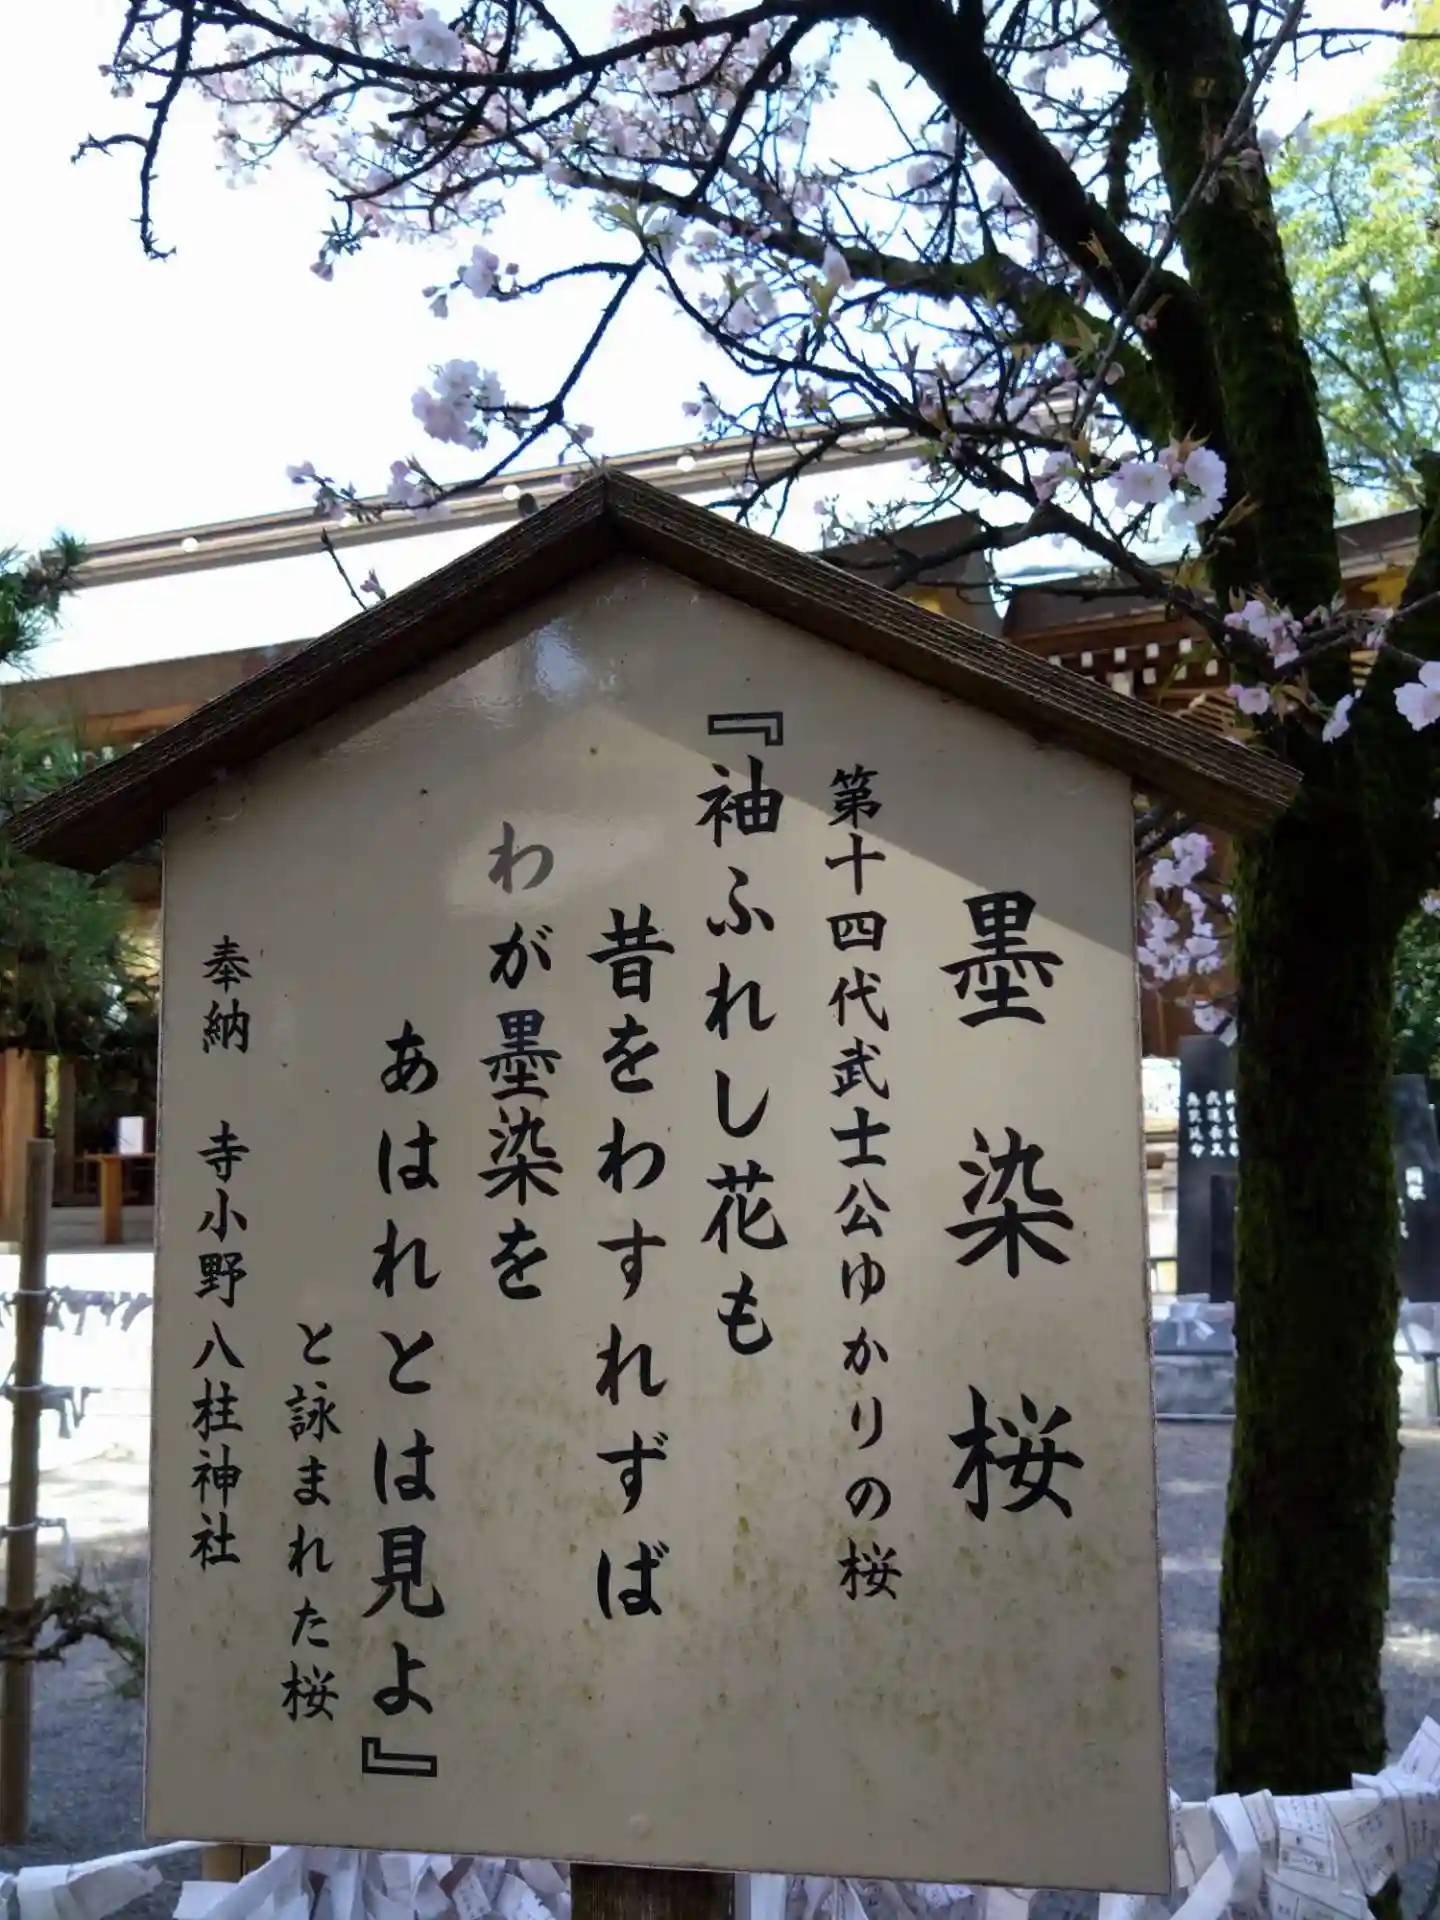 墨染桜
第十四代武士公ゆかりの桜
『袖ふれし花も
昔をわすれずば
わが墨染を
あはれとは見よ』
と詠まれた桜
奉納 寺小野八柱神社